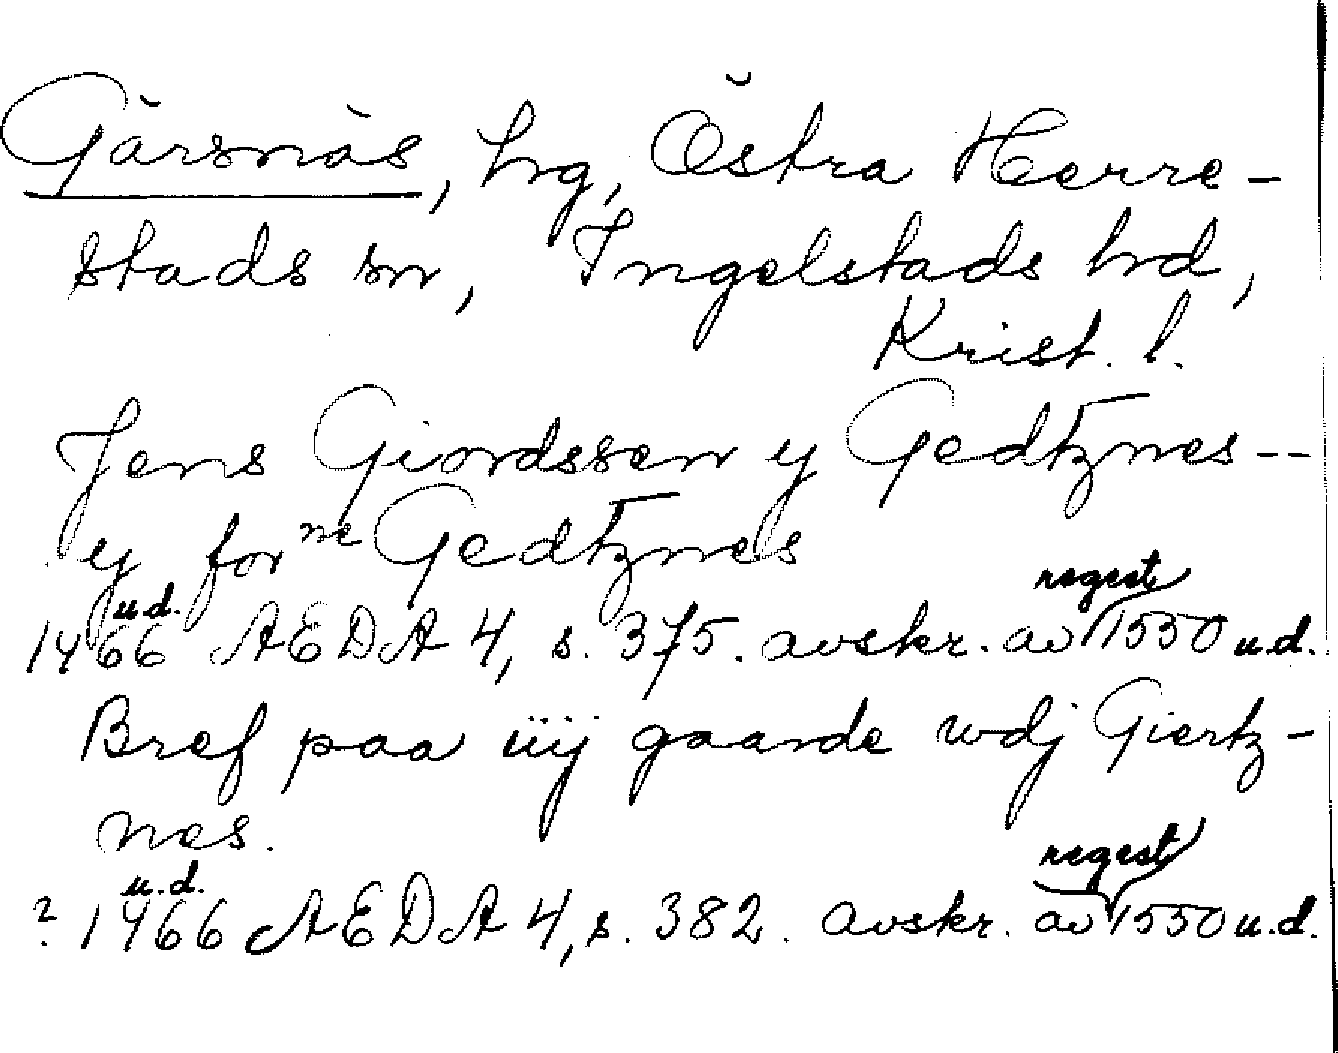 Gärsnäs, hrg, Östra Herre-
stads sn, Ingelstads hrd,
Krist. l.
Jens Giordssen y Gedtznes --
y forne Gedtznes
1466 u.d. AEDA 4, s. 375. avskr. av regest 1550 u.d.
Bref paa iiij gaarde wdj Giertz-
nes.
? 1466 u.d. AEDA 4, s. 382. avskr. av regest 1550 u.d.